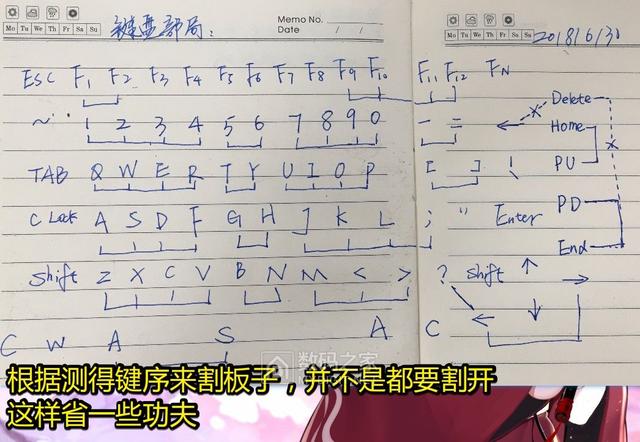 Memo No.
Mo Tu We Th Fr Sa Su
键盘部局:
Date / /
Mo Tu We Th Fr Sa Su
2018/6/30
ESC F1 F2 F3 F4 F5 F6 F7 F8 F9 F10 F11 F12 FN
~ 1 2 3 4 5 6 7 8 9 0 - = ← Delete
Home
TAB Q W E R T Y U I O P [ ] \ PU
C Lock A S D F G H J K L ; " Enter PD
End
Shift Z X C V B N M < > ? Shift ↑ →
← ↓
C W A S A C
数码之家
根据测得键序来割板子，并不是都要割开
这样省一些功夫